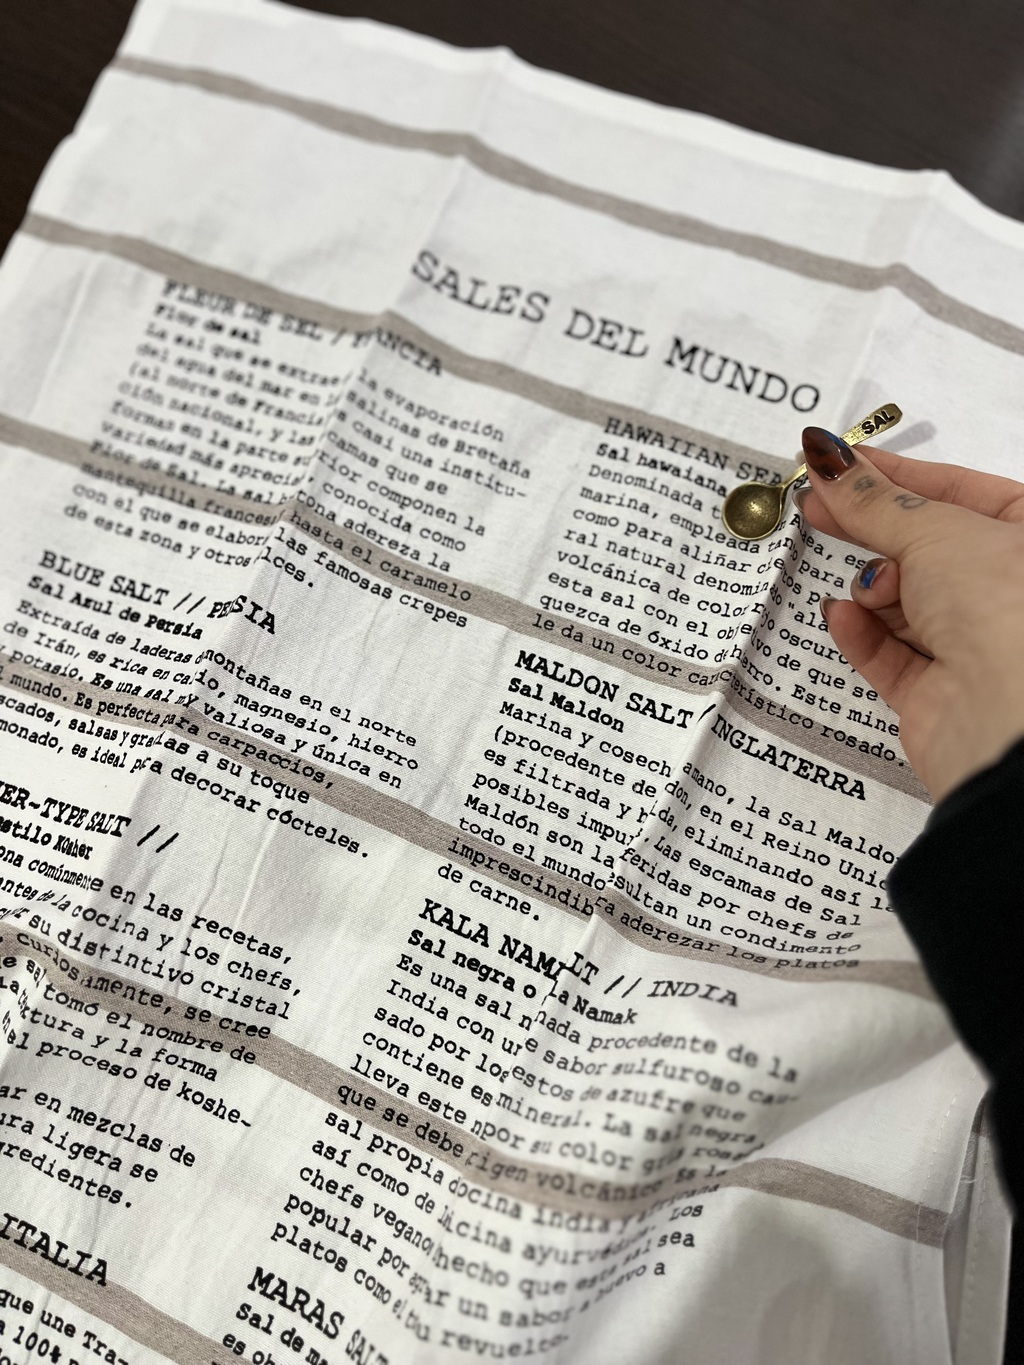 SALES DEL MUNDO
FLEUR DE SEL / FRANCIA
Flor de sal
La sal que se extrae la evaporación
del agua del mar en salinas de Bretaña
(al norte de Francia casi una institu-
ción nacional, y las camas que se
formas en la parte componen la
variedad más apreci conocida como
Flor de Sal. La sal adereza la
mantequilla frances hasta el caramelo
con el que se elabor las famosas crepes
de esta zona y otros lces.
BLUE SALT // PERSIA
Sal Azul de Persia
Extraída de laderas montañas en el norte
de Irán, es rica en io, magnesio, hierro
y potasio. Es una sal valiosa y única en
l mundo. Es perfecta para carpaccios,
scados, salsas y a su toque
monado, es ideal a decorar cócteles.
ER-TYPE SALT //
stilo Kosher
ona comúnmente en las recetas,
antes de la cocina y los chefs,
su distintivo cristal
mente, se cree
tomó el nombre de
textura y la forma
el proceso de koshe-
ar en mezclas de
ura ligera se
gredientes.
ITALIA
que une Tra-
a 100%
HAWAIIAN SEA
SAL
Sal hawaiana
Denominada Alaea, es
marina, empleada tanto para
como para aliñar
ral natural denomin "ala
volcánica de color rojo oscuro,
esta sal con el objetivo de que se
quezca de óxido de hierro. Este mine
le da un color característico rosado.
MALDON SALT / INGLATERRA
Sal Maldon
Marina y cosech amano, la Sal Maldo
(procedente de don, en el Reino Unid
es filtrada y da, eliminando así
posibles impu Las escamas de Sal
Maldón son la feridas por chefs de
todo el mundo sultan un condimento
imprescindib a aderezar los platos
de carne.
KALA NAM LT // INDIA
Sal negra o la Namak
Es una sal nada procedente de la
India con un sabor sulfuroso cau-
sado por los estos de azufre que
contiene es mineral. La sal negra,
lleva este por su color gris rosa
que se debe rigen volcánico. Es la
sal propia cocina india y africana
así como de cina ayurvédica. Los
chefs vegano hecho que esta sal sea
popular por ar un sabor a huevo a
platos como u revuelto.
MARAS SALT
Sal de ma
es ob